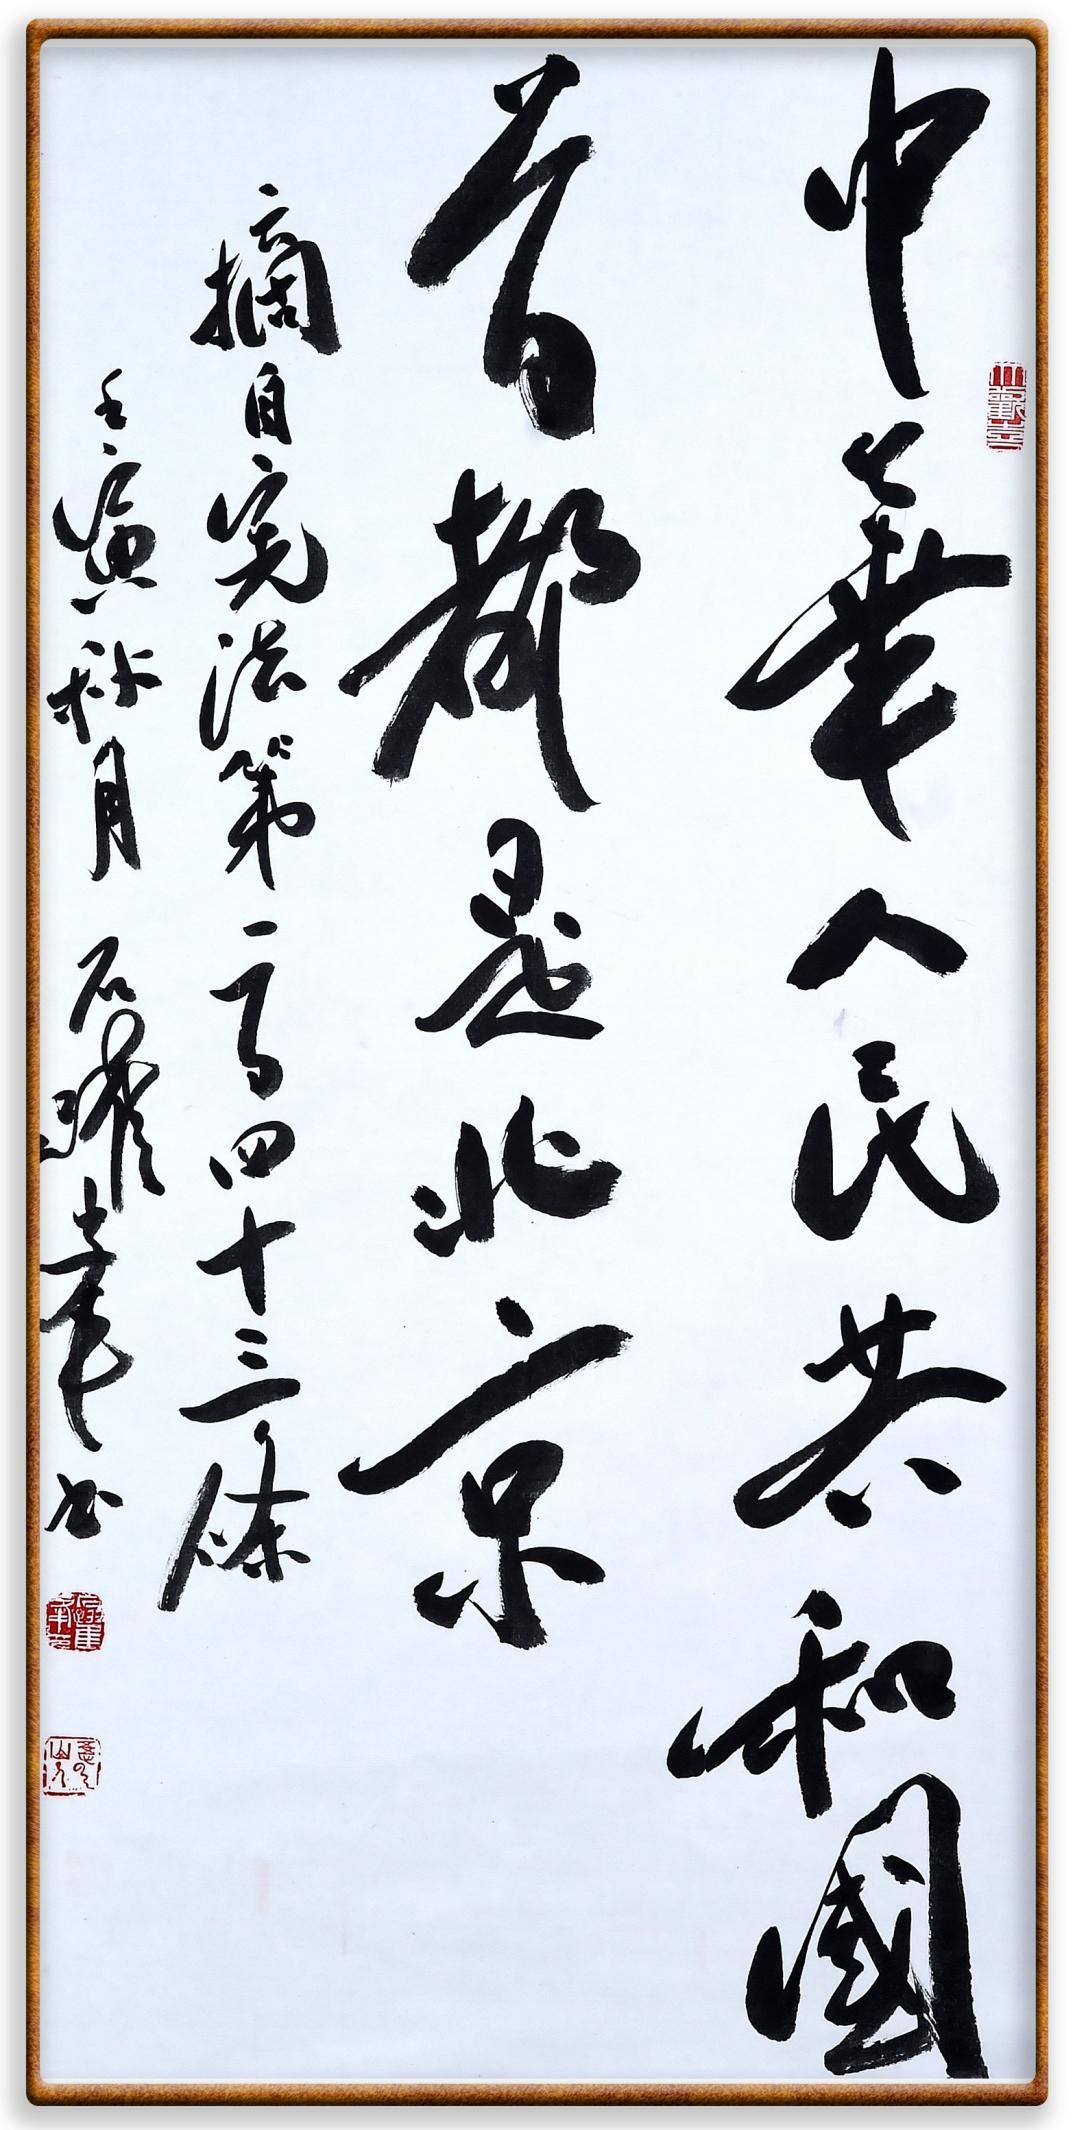 中華人民共和國
首都是北京
摘自宪法第一百四十三條
壬寅秋月 石躍軍书